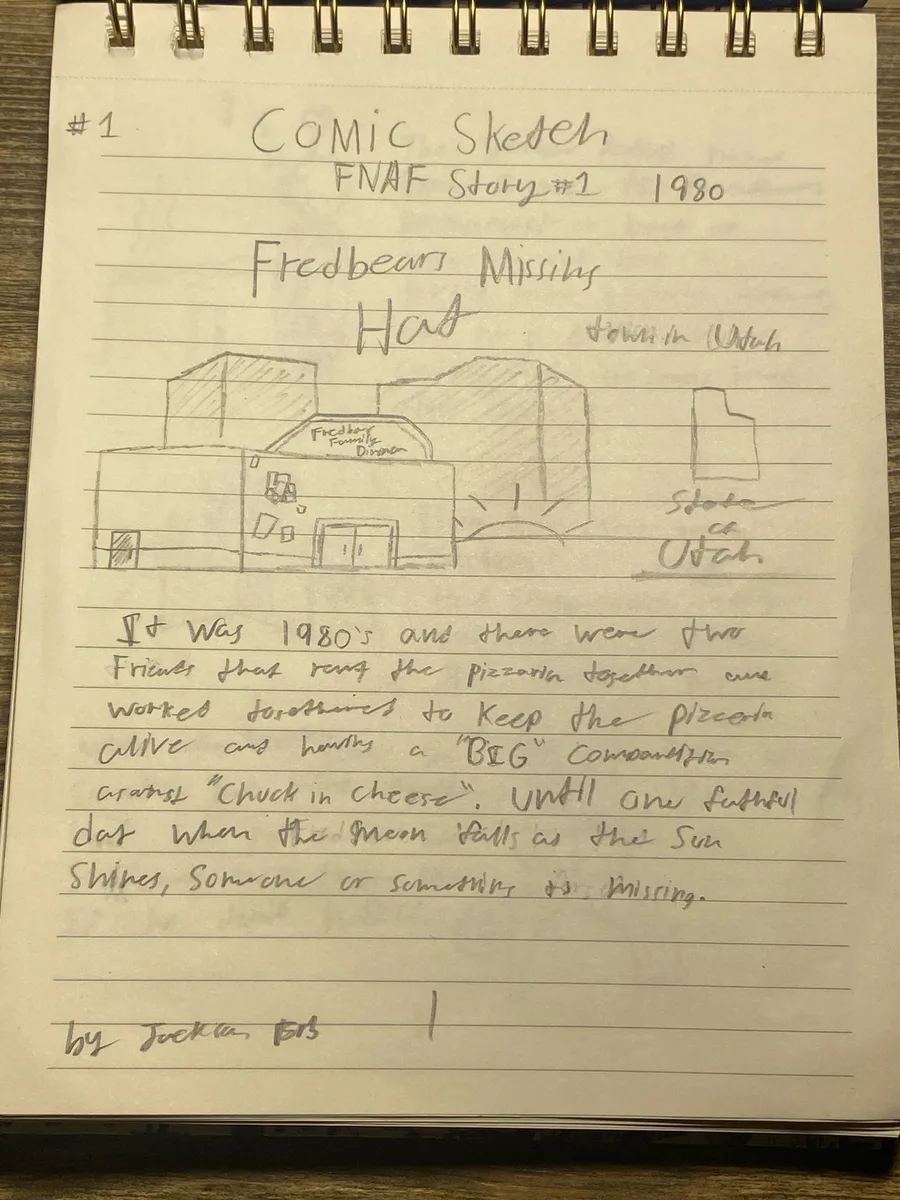 #1
COMIC Sketch
FNAF Story #1 1980
Fredbears Missing
Hat
town in Utah
Fredbears
Family
Dinner
State
of
Utah
It was 1980's and there were two
Friends that the pizzaria together and
worked to keep the pizzeria
alive and having a "BIG"
against "Chuck in cheese". until one fathful
day when the moon falls as the Sun
Shines, Someone or something is missing.
by Jackson
1